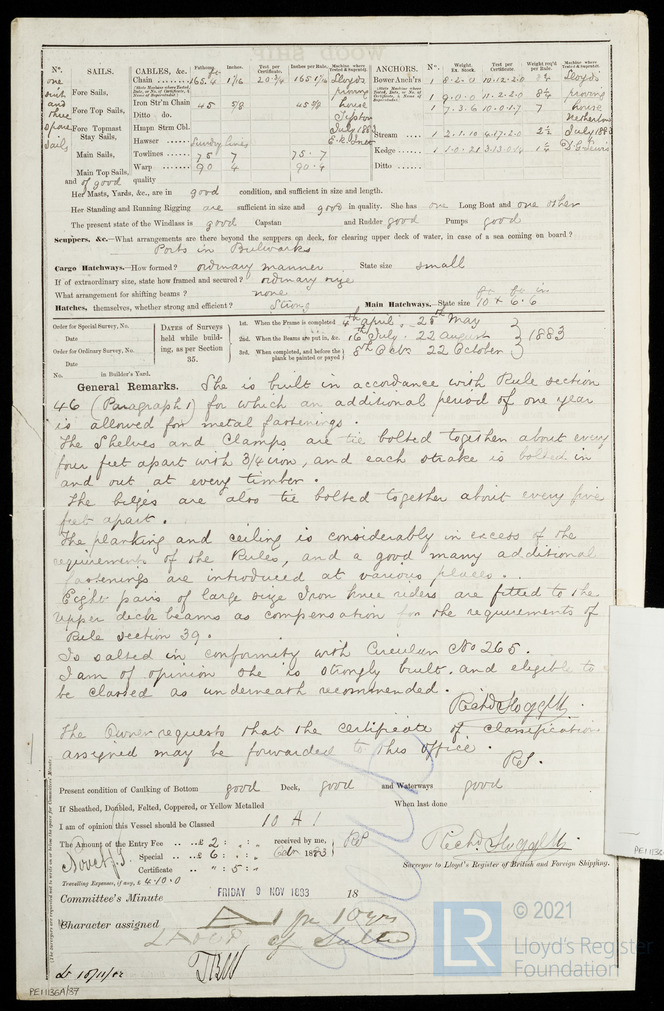 WOOD SHIP
No. SAILS. CABLES, &c. Fathoms. Inches. Test per Certificate. Inches per Rule. Machine where Tested & Superintd. ANCHORS. No. Weight Ex. Stock. Test per Certificate. Weight req'd per Rule. Machine where Tested & Superintd.
one Chain 165.4 1 1/16 20 3/4 165 1 1/16 Lloyds Bower Anch'rs 1 8.2.0 10.12.2.0 8 1/4 Lloyds
suit Fore Sails, proving 1 9.0.0 11.2.2.0 8 1/4 proving
and Iron Str'm Chain 45 5/8 45 5/8 house 1 7.3.6 10.0.1.7 7 house
three Fore Top Sails, Ditto do. Tipton Netherton
spare Fore Topmast Stay Sails, Hmpn Strm Cbl. July 1883 Stream 1 2.1.10 4.17.2.0 2 1/4 July 1883
sails Hawser Sundry lines
Main Sails, Towlines 75 7 75.7 Kedge 1 1.0.21 3.13.0.14 1 1/4
Main Top Sails, Warp 90 4 90.4 Ditto
and of good quality
Her Masts, Yards, &c., are in good condition, and sufficient in size and length.
Her Standing and Running Rigging are sufficient in size and good in quality. She has one Long Boat and one other
The present state of the Windlass is good Capstan and Rudder good Pumps good
Scuppers, &c.—What arrangements are there beyond the scuppers on deck, for clearing upper deck of water, in case of a sea coming on board?
Ports in Bulwarks
Cargo Hatchways.—How formed? ordinary manner State size small
If of extraordinary size, state how framed and secured? ordinary size
What arrangement for shifting beams? none
Hatches, themselves, whether strong and efficient? Strong Main Hatchways.—State size 10 x 6.6
Order for Special Survey, No. Date
Order for Ordinary Survey, No. Date
No. in Builder's Yard.
DATES of Surveys held while building, as per Section 35.
1st. When the Frame is completed 4th april . 25th May
2nd. When the Beams are put in, &c. 16th July . 22 august 1883
3rd. When completed, and before the plank be painted or payed 8th Octbr 22 October
General Remarks. She is built in accordance with Rule section
46 (Paragraph 1) for which an additional period of one year
is allowed for metal fastenings.
The Shelves and Clamps are tie bolted together about every
four feet apart with 3/4 iron, and each strake is bolted in
and out at every timber.
The bilges are also tie bolted together about every five
feet apart.
The planking and ceiling is considerably in excess of the
requirements of the Rules, and a good many additional
fastenings are introduced at various places.
Eight pairs of large size Iron knee riders are fitted to the
upper deck beams as compensation for the requirements of
Rule section 39.
Is salted in conformity with Circular No 265.
I am of opinion she is strongly built. and eligible to
be classed as underneath recommended.
The Owner requests that the certificate of classification
assigned may be forwarded to this office.
Present condition of Caulking of Bottom good Deck, good and Waterways good
If Sheathed, Doubled, Felted, Coppered, or Yellow Metalled When last done
I am of opinion this Vessel should be Classed 10 A 1
The Amount of the Entry Fee £ 2 : : received by me,
Special £ 6 : : 1883
Certificate : 5 :
Travelling Expenses, if any, £ 4.10.0
Surveyor to Lloyd's Register of British and Foreign Shipping.
Committee's Minute FRIDAY 9 NOV 1883 18
Character assigned A 1 for 10 yrs
Salted
PE11136A/37
LR
© 2021
Lloyd's Register
Foundation